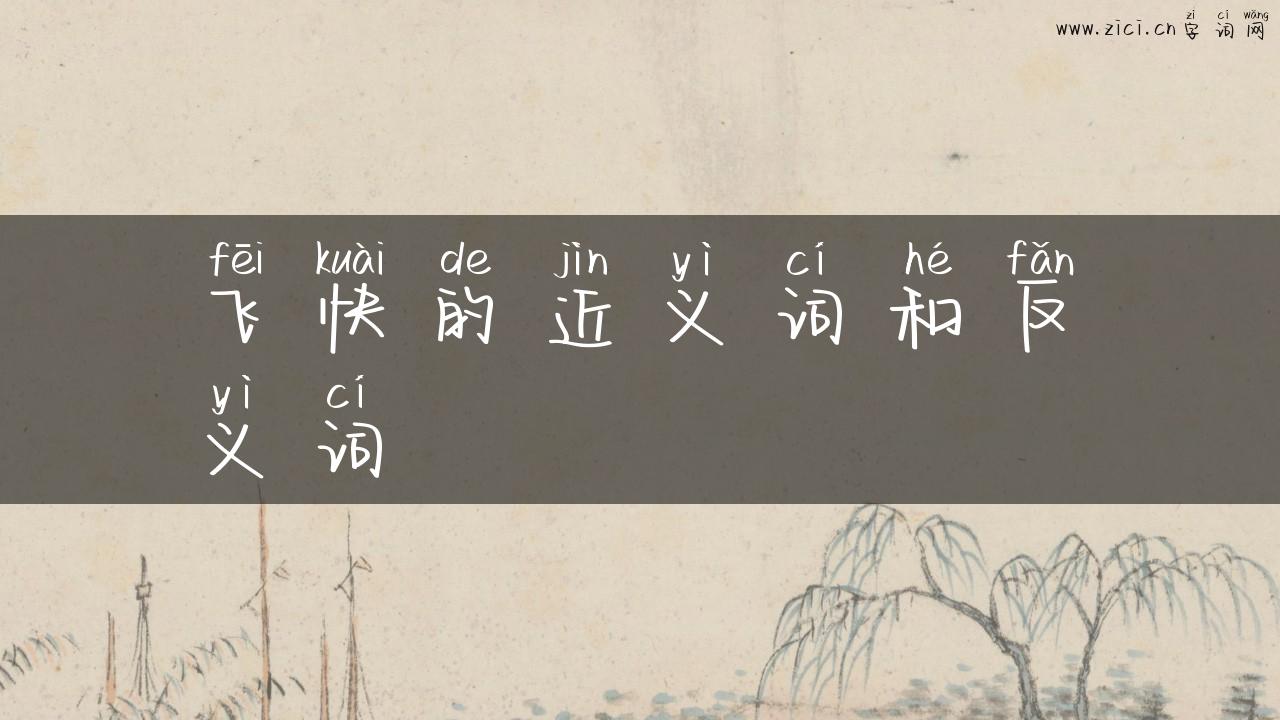 zì cí wǎng
www.zici.cn 字 词 网
fēi kuài de jìn yì cí hé fǎn
飞 快 的 近 义 词 和 反
yì cí
义 词